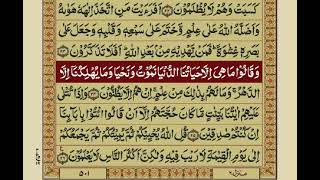 كَسَبَتْ وَهُمْ لَا يُظْلَمُوْنَ ﴿۲۲﴾ اَفَرَءَيْتَ مَنِ اتَّخَذَ اِلٰهَهٗ هَوٰىهُ
وَاَضَلَّهُ اللّٰهُ عَلٰى عِلْمٍ وَّخَتَمَ عَلٰى سَمْعِهٖ وَقَلْبِهٖ وَجَعَلَ عَلٰى
بَصَرِهٖ غِشٰوَةً ؕ فَمَنْ يَّهْدِيْهِ مِنْۢ بَعْدِ اللّٰهِ ؕ اَفَلَا تَذَكَّرُوْنَ ﴿۲۳﴾
وَقَالُوْا مَا هِيَ اِلَّا حَيَاتُنَا الدُّنْيَا نَمُوْتُ وَنَحْيَا وَمَا يُهْلِكُنَاۤ اِلَّا
الدَّهْرُ ۚ وَمَا لَهُمْ بِذٰلِكَ مِنْ عِلْمٍ ۚ اِنْ هُمْ اِلَّا يَظُنُّوْنَ ﴿۲۴﴾ وَاِذَا تُتْلٰى
عَلَيْهِمْ اٰيٰتُنَا بَيِّنٰتٍ مَّا كَانَ حُجَّتَهُمْ اِلَّاۤ اَنْ قَالُوا ائْتُوْا بِاٰبَآئِنَاۤ
اِنْ كُنْتُمْ صٰدِقِيْنَ ﴿۲۵﴾ قُلِ اللّٰهُ يُحْيِيْكُمْ ثُمَّ يُمِيْتُكُمْ ثُمَّ يَجْمَعُكُمْ
اِلٰى يَوْمِ الْقِيٰمَةِ لَا رَيْبَ فِيْهِ وَلٰكِنَّ اَكْثَرَ النَّاسِ لَا يَعْلَمُوْنَ ﴿۲۶﴾
۵۰۱